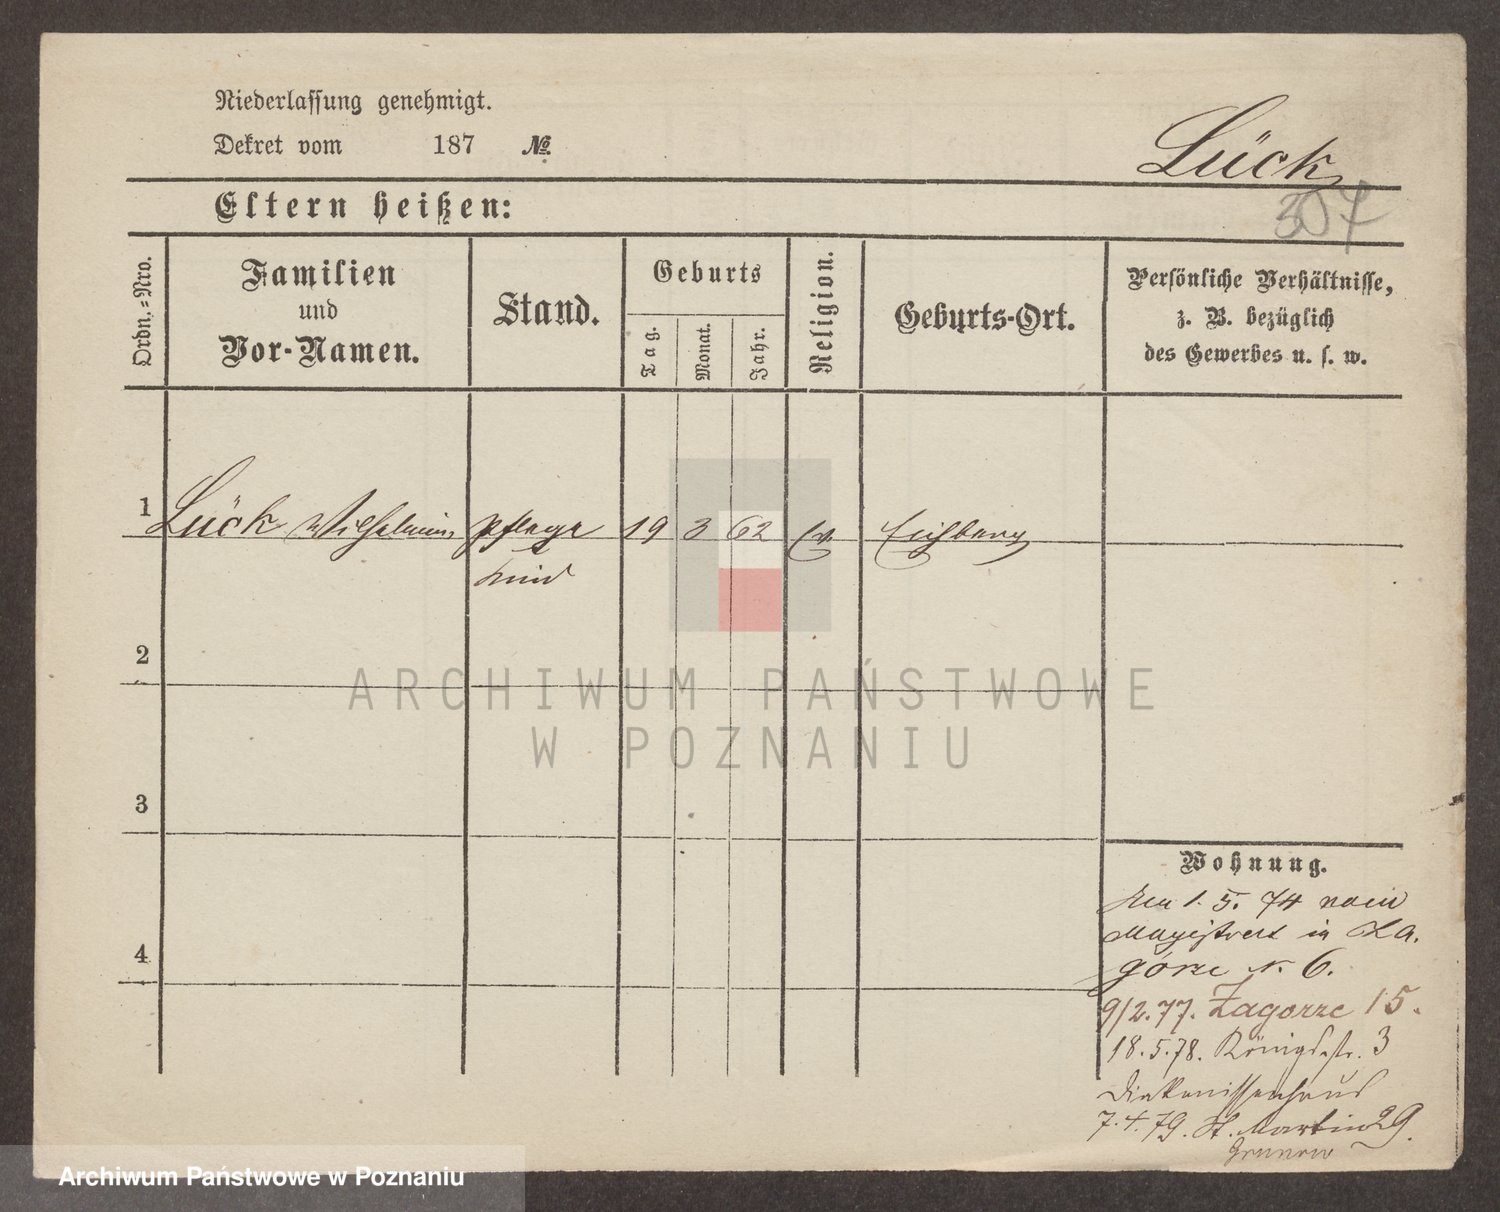 Niederlassung genehmigt.
Dekret vom 187 №
Lück
307
Eltern heißen:
Ordn.-Nro.
Familien
und
Vor-Namen.
Stand.
Geburts
Tag.
Monat.
Jahr.
Religion.
Geburts-Ort.
Persönliche Verhältnisse,
z. B. bezüglich
des Gewerbes u. s. w.
1 Lück Pflege 19 3 62 Ev Eichberg
kind
2
3
4
ARCHIWUM PAŃSTWOWE
W POZNANIU
Wohnung.
1. 5. 74
Magistrat in Za
górze N. 6.
9/2.77. Zagorze 15.
18.5.78. Königsstr. 3
Diakonissenhaus
7.4.79. St. Martin 29.
Archiwum Państwowe w Poznaniu